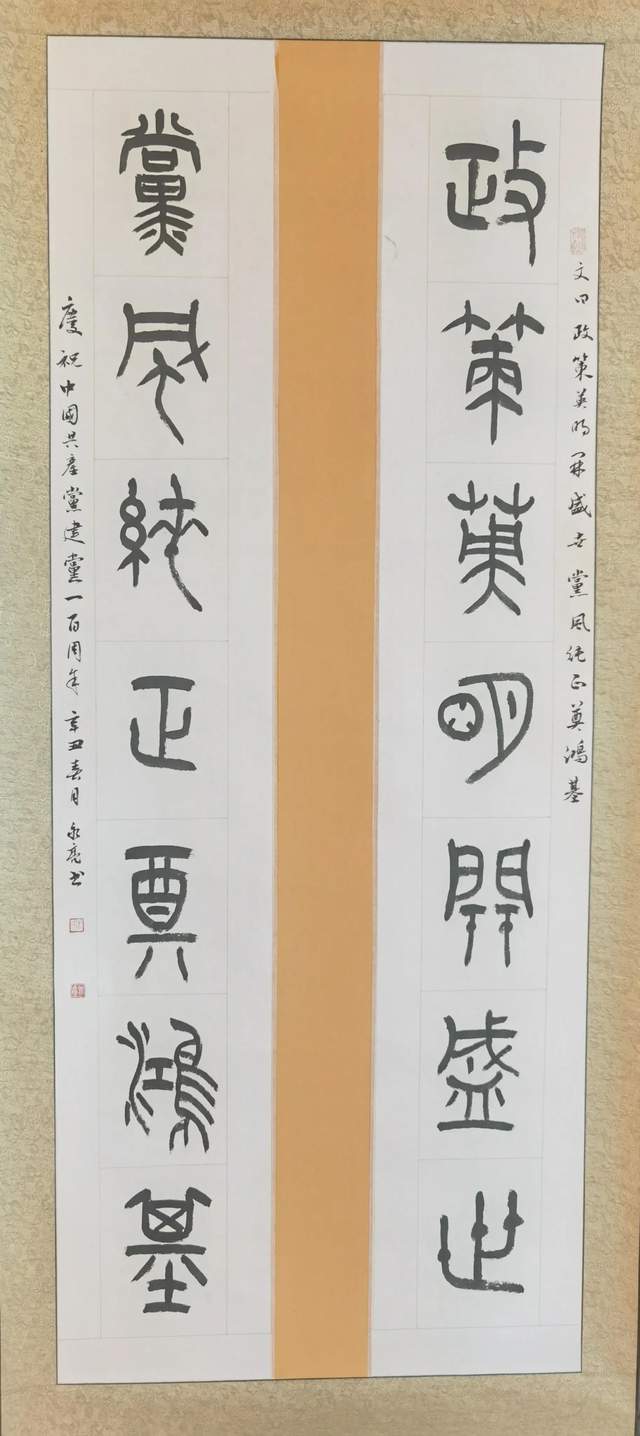 文曰政策英明開盛世黨風純正奠鴻基
政策英明開盛世
黨風純正奠鴻基
慶祝中國共產黨建黨一百周年辛丑春月永亮书